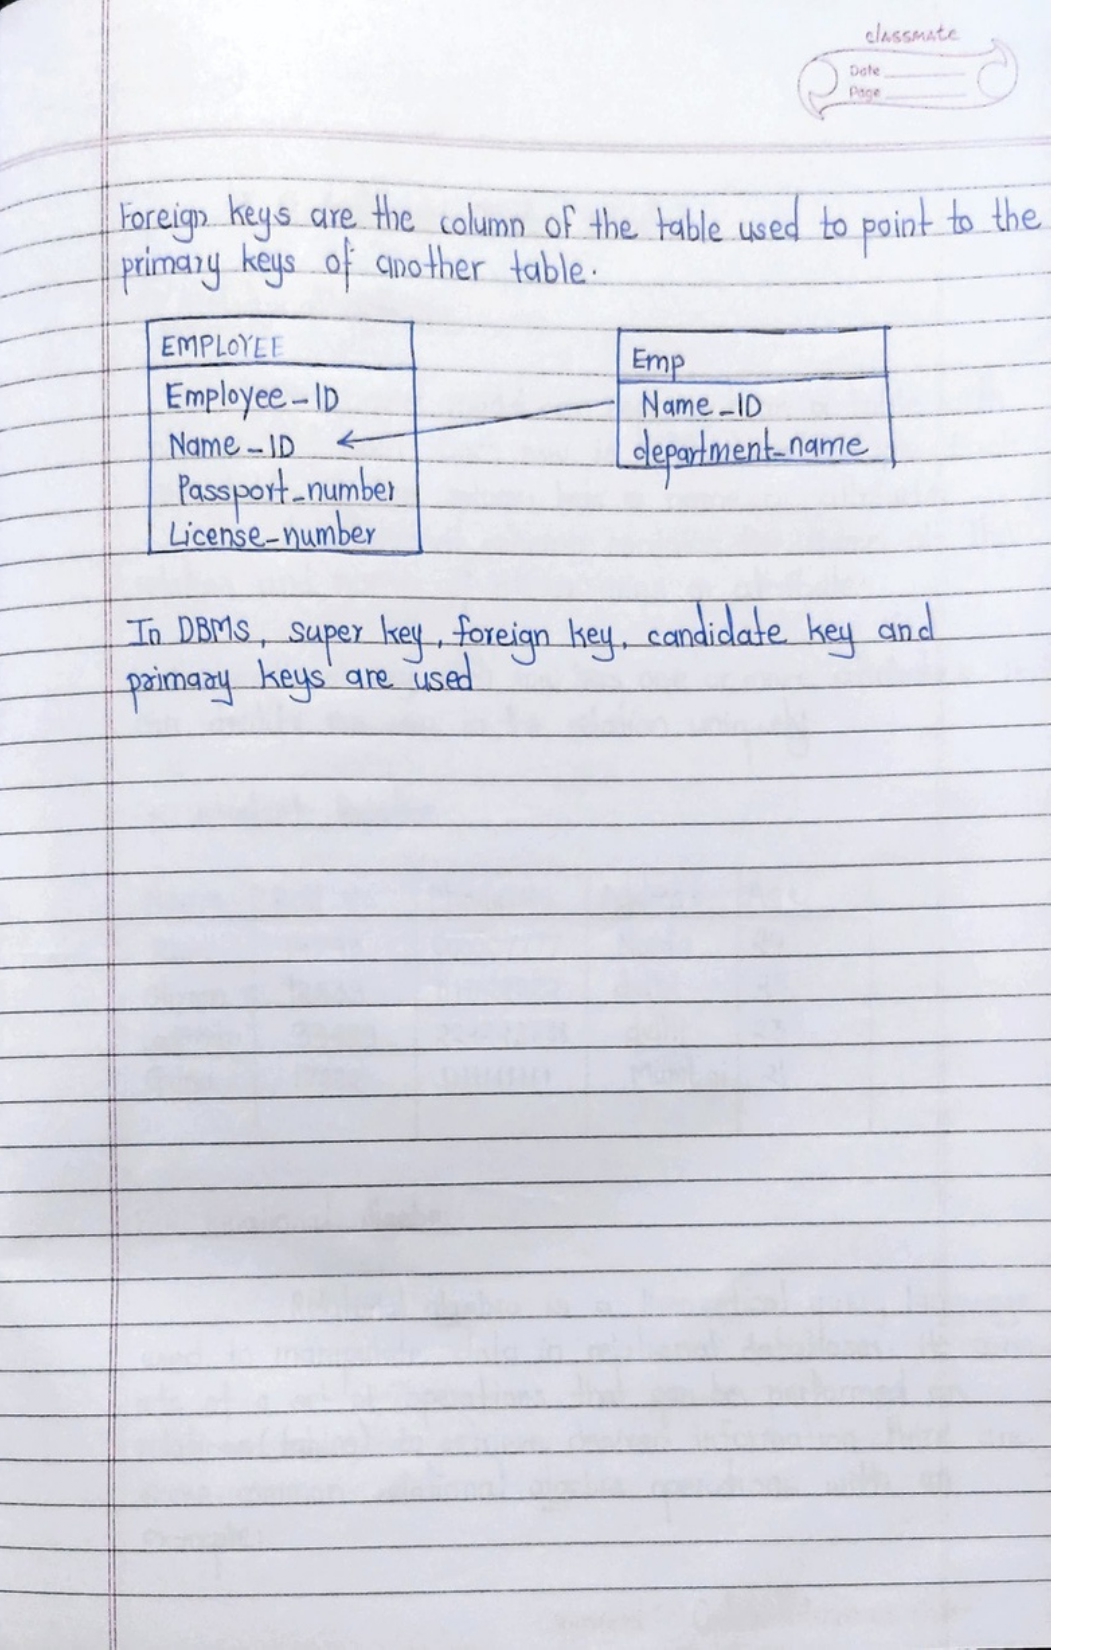 classmate
Date
Page
Foreign keys are the column of the table used to point to the
primary keys of another table.
EMPLOYEE
Employee_ID
Name_ID
Passport_number
License_number
Emp
Name_ID
department_name
In DBMS, super key, foreign key, candidate key and
primary keys are used